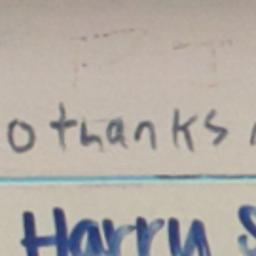 o thanks
Harry S